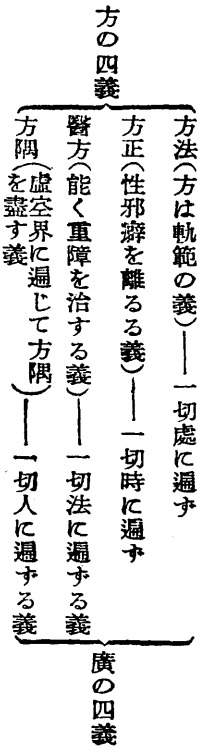 方の四義
方法(方は軌範の義)―― 一切處に遍ず
方正(性邪癖を離るる義)―― 一切時に遍ず
醫方(能く重障を治する義)―― 一切法に遍ずる義
方隅(虛空界に遍じて方隅を盡す義)―― 一切人に遍ずる義
廣の四義